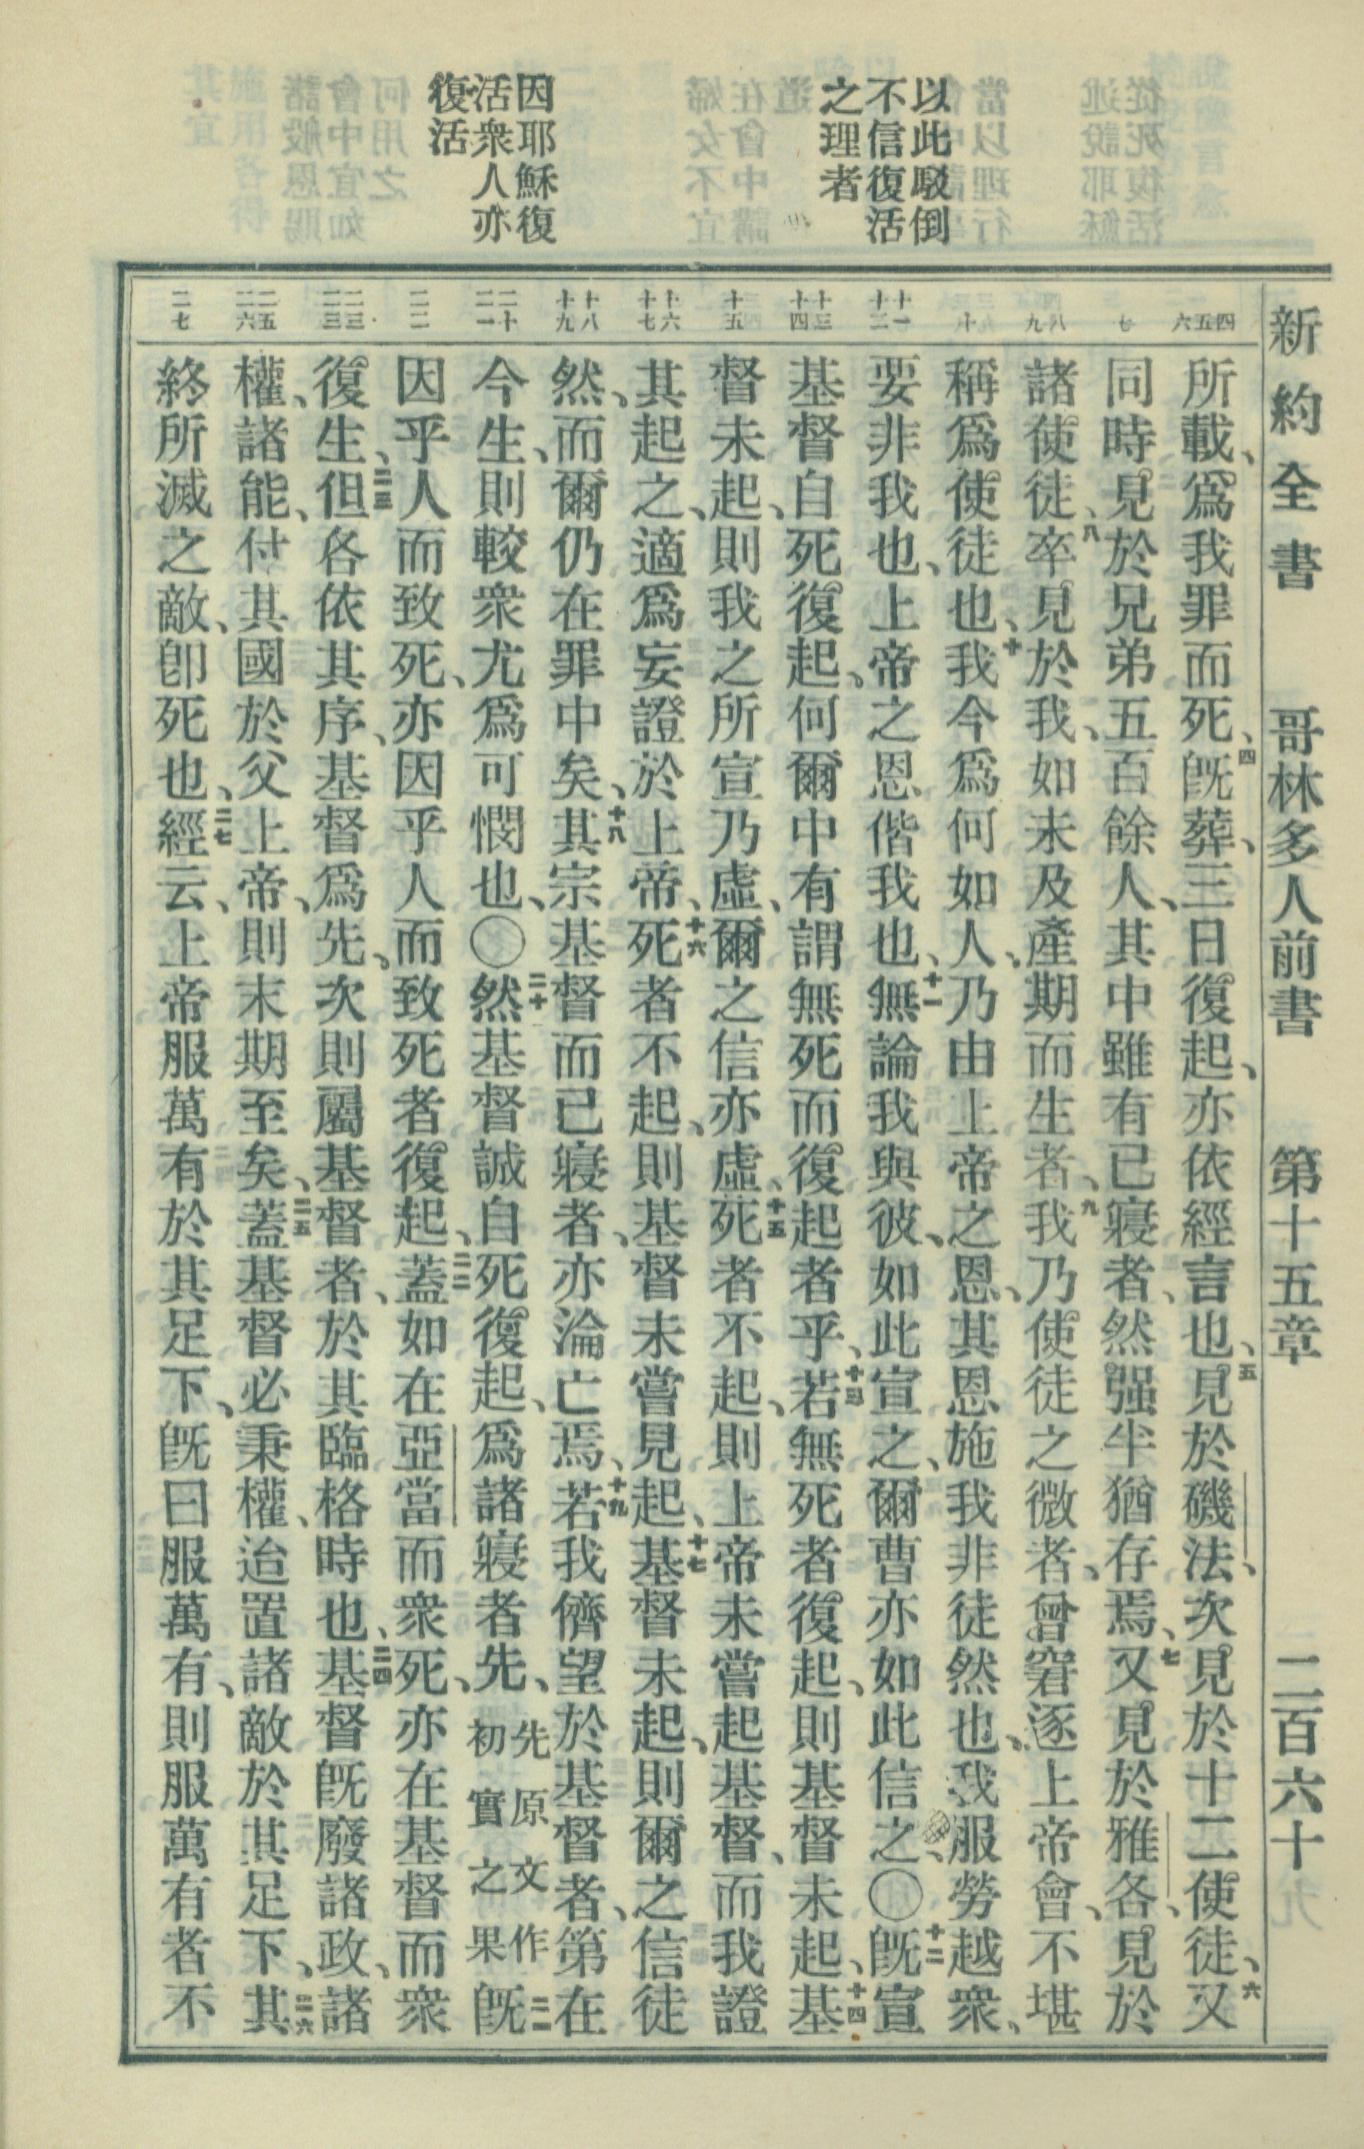 新約全書 哥林多人前書 第十五章 二百六十
以此駁倒
不信復活
之理者
因耶穌復
活衆人亦
復活
四 五 六
七
八 九
十
十一 十二
十三 十四
十五
十六 十七
十八 十九
二十 二一
二二
二三 二三
二五 二六
二七
所載、爲我罪而死、四旣葬、三日復起、亦依經言也、五見於磯法、次見於十二使徒、六又
同時見於兄弟五百餘人、其中雖有已寢者、然强半猶存焉、七又見於雅各、見於
諸使徒、八卒見於我、如未及產期而生者、九我乃使徒之微者、曾窘逐上帝會、不堪
稱爲使徒也、十我今爲何如人、乃由上帝之恩、其恩施我非徒然也、我服勞越衆、
要非我也、上帝之恩偕我也、十一無論我與彼、如此宣之、爾曹亦如此信之、〇十二旣宣
基督自死復起、何爾中有謂無死而復起者乎、十三若無死者復起、則基督未起、十四基
督未起、則我之所宣乃虛、爾之信亦虛、十五死者不起、則上帝未嘗起基督、而我證
其起之、適爲妄證於上帝、十六死者不起、則基督未嘗見起、十七基督未起、則爾之信徒
然、而爾仍在罪中矣、十八其宗基督而已寢者、亦淪亡焉、十九若我儕望於基督者、第在
今生、則較衆尤爲可憫也、〇二十然基督誠自死復起、爲諸寢者先、先原文作初實之果二一旣
因乎人而致死、亦因乎人而致死者復起、二二蓋如在亞當而衆死、亦在基督而衆
復生、二三但各依其序、基督爲先、次則屬基督者、於其臨格時也、二四基督旣廢諸政、諸
權、諸能、付其國於父上帝、則末期至矣、二五蓋基督必秉權、迨置諸敵於其足下、二六其
終所滅之敵、卽死也、二七經云、上帝服萬有於其足下、旣曰服萬有、則服萬有者不